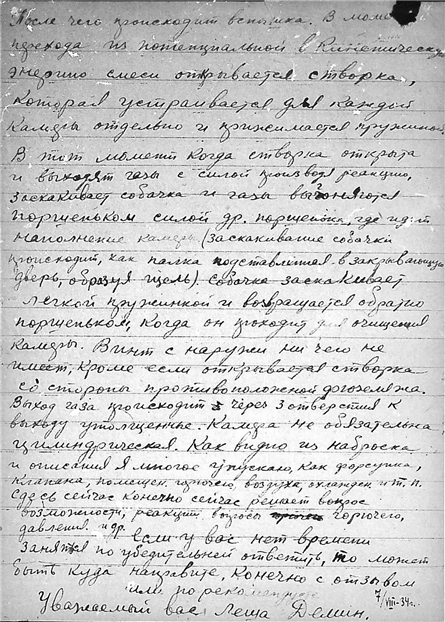 После чего происходит вспышка. В мом
перехода из потенциальной в Кинетическую
энергию смеси открывается створка,
которая устраивается для каждой
Камеры отдельно и прижимается пружиной.
В тот момент когда створка открыта
и выходят газы с силой производя реакцию,
заскакивает собачка и газы выгоняются
поршеньком силой др. поршенька, где идет
наполнение камеры (заскакивание собачки
происходит, как палка подставленная в закрывающуюся
дверь, образуя щель). собачка заскакивает
легкой пружинкой и возвращается обратно
поршеньком, когда он проходит для очищения
камеры. Винт с наружи ни чего не
имеет, кроме если открывается створка
со стороны противоположной
Выход газа происходит через 3 отверстия к
выходу утолщенные. Камера не обязательна
цилиндрическая. Как видно из наброска
и описания я многое упускаю, как форсунка,
клапана, помещен. горючего, воздуха, охлажден. и т. п.
Здесь сейчас конечно сейчас решает вопрос
возможности, реакции вопросы горючего,
давления и др.
Если у вас нет времени
заняться по убедительней ответить, то может
быть куда направите, конечно с отзывом
или
Уважаемый вас Леша Демин.
7/VIII-34г.